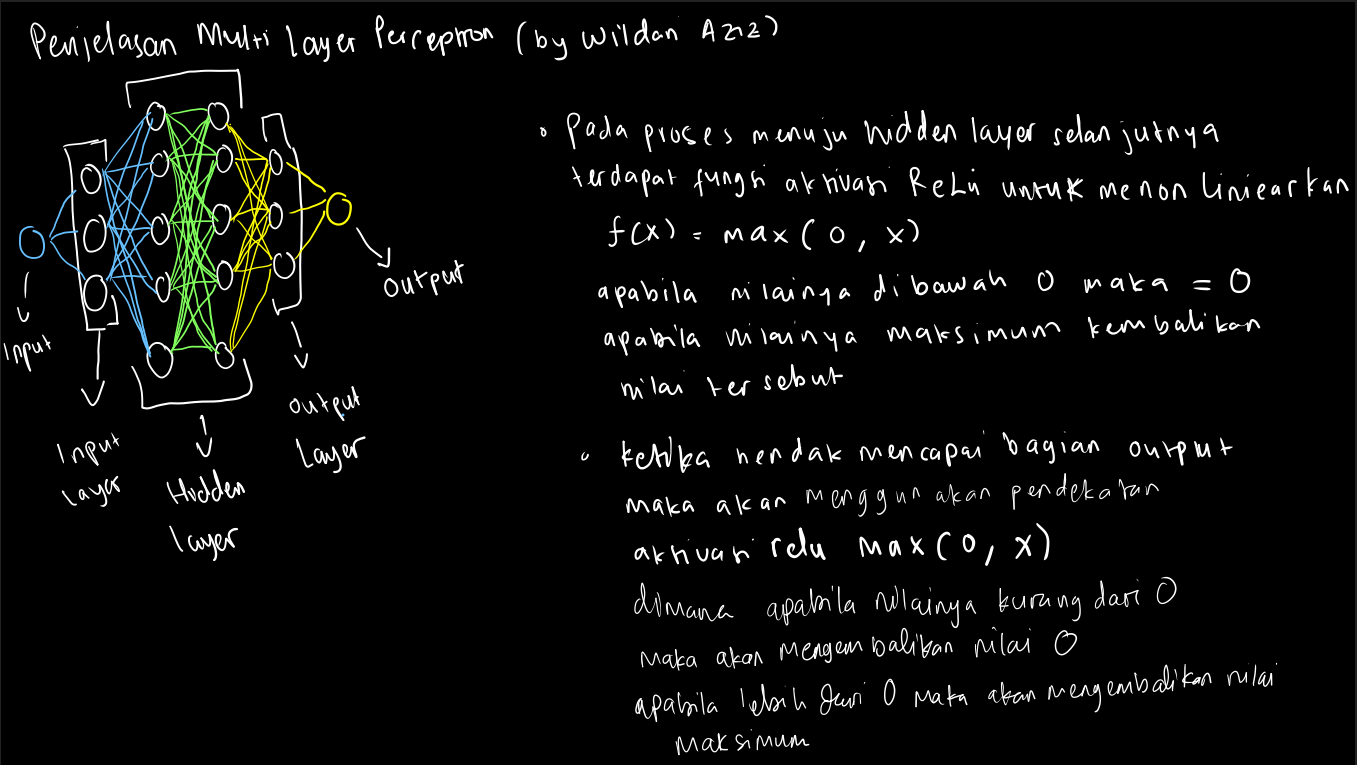 Penjelasan Multi Layer Perceptron (by Wildan Aziz)
Input
Input
Layer
Hidden
layer
Output
Layer
Output
Pada proses menuju hidden layer selanjutnya
terdapat fungsi aktivasi ReLu untuk menon liniearkan
f(x) = max(0, x)
apabila nilainya dibawah 0 maka = 0
apabila nilainya maksimum kembalikan
nilai tersebut
ketika hendak mencapai bagian output
maka akan menggunakan pendekatan
aktivasi relu max(0, x)
dimana apabila nilainya kurang dari 0
maka akan mengembalikan nilai 0
apabila lebih dari 0 maka akan mengembalikan nilai
maksimum